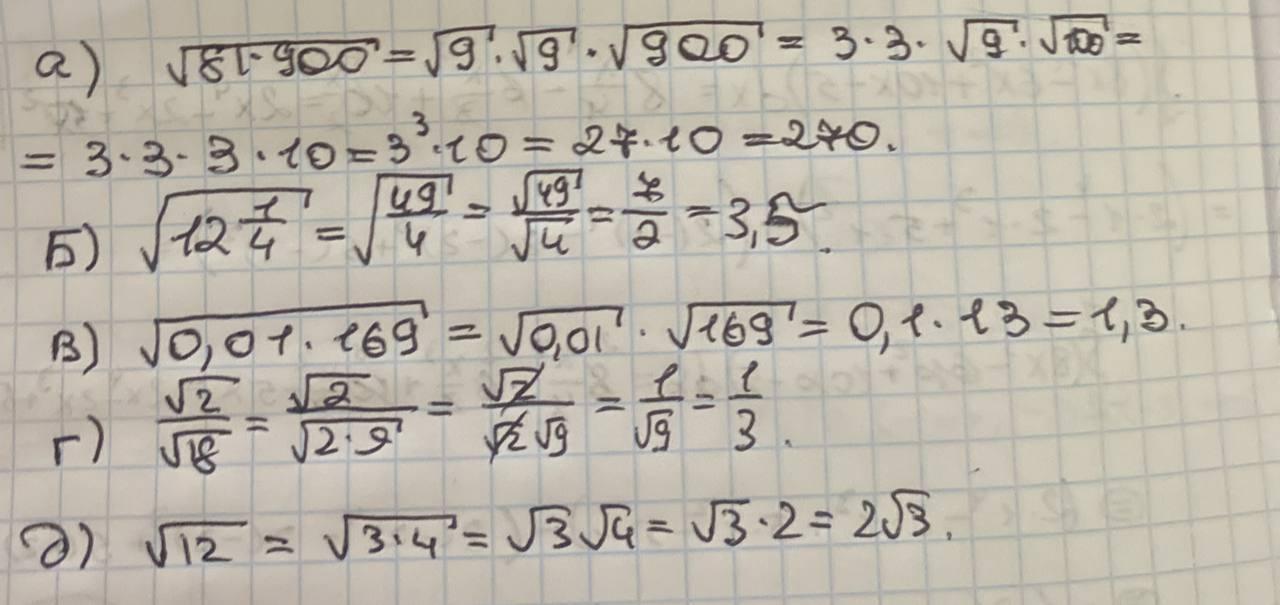 а) √(81·900) = √9·√9·√900 = 3·3·√9·√100 =
= 3·3·3·10 = 3³·10 = 27·10 = 270.
Б) √(12 1/4) = √(49/4) = √49/√4 = 7/2 = 3,5.
в) √(0,01·169) = √0,01·√169 = 0,1·13 = 1,3.
г) √2/√18 = √2/√(2·9) = √2/(√2√9) = 1/√9 = 1/3.
д) √12 = √(3·4) = √3√4 = √3·2 = 2√3.